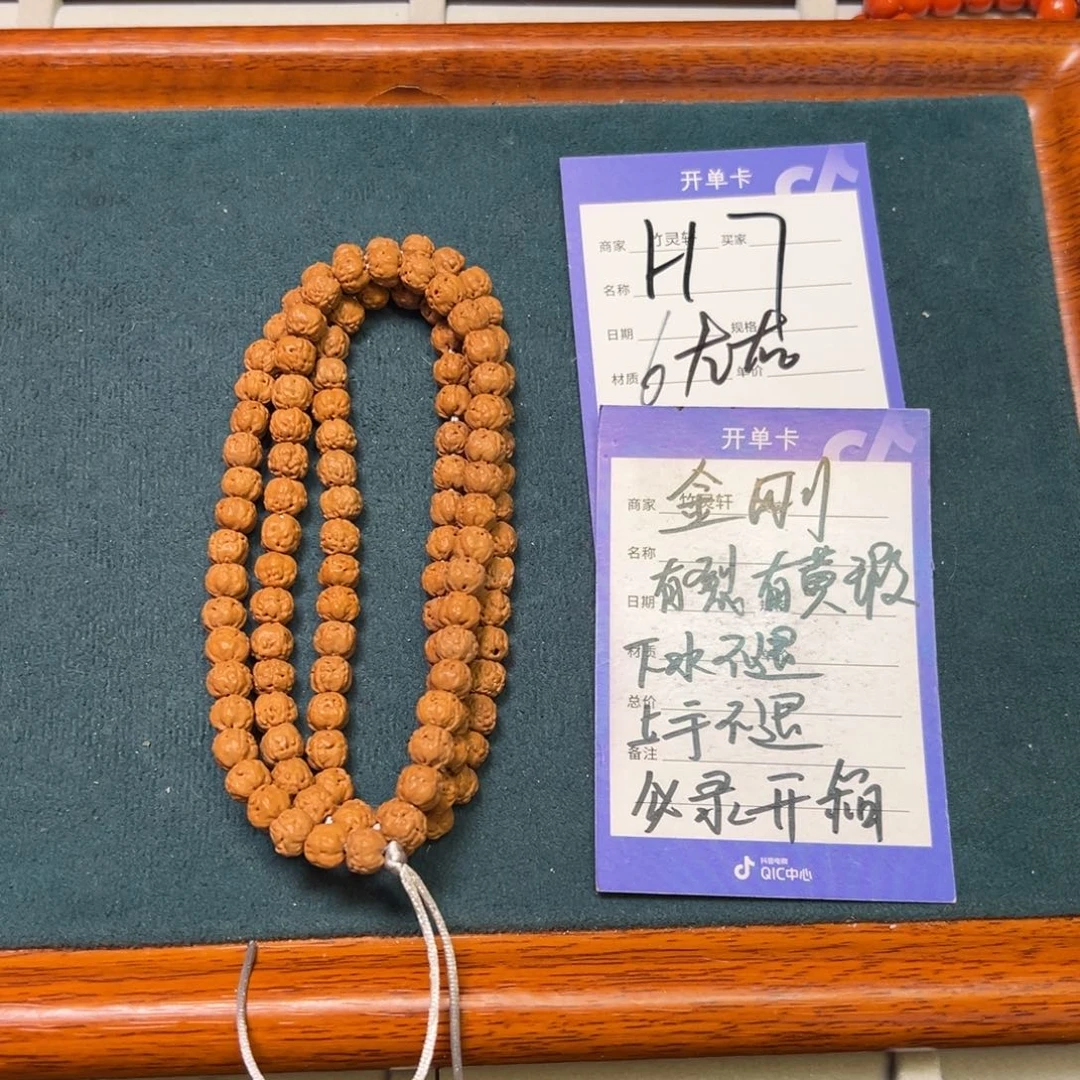 开单卡
商家 竹灵轩 买家
H7
名称
日期 规格
6尤
材质 单价
开单卡
商家 竹灵轩
金刚
名称
有裂有黄瑕
日期
材质
下水不退
总价
上手不退
备注
必录开箱
抖音电商
QIC中心